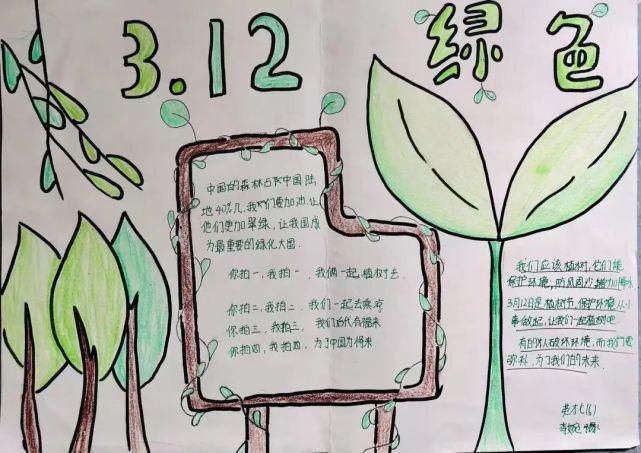 3.12
绿色
中国的森林占及中国陆
地40%几,我们要加油,让
他们更加翠绿,让我国成
为最重要的绿化大国.
你拍一,我拍一.我俩一起,植树去.
你拍二,我拍二.我们一起去乘凉
你拍三,我拍三.我们后代有福来
你拍四,我拍四.为了中国为将来
我们应该植树,它们能
保护环境,防风固沙,
3月12日是植树节,保护环境从小
事做起,让我们一起植树吧
有的人破坏环境,而我们要
弥补,为了我们的未来.